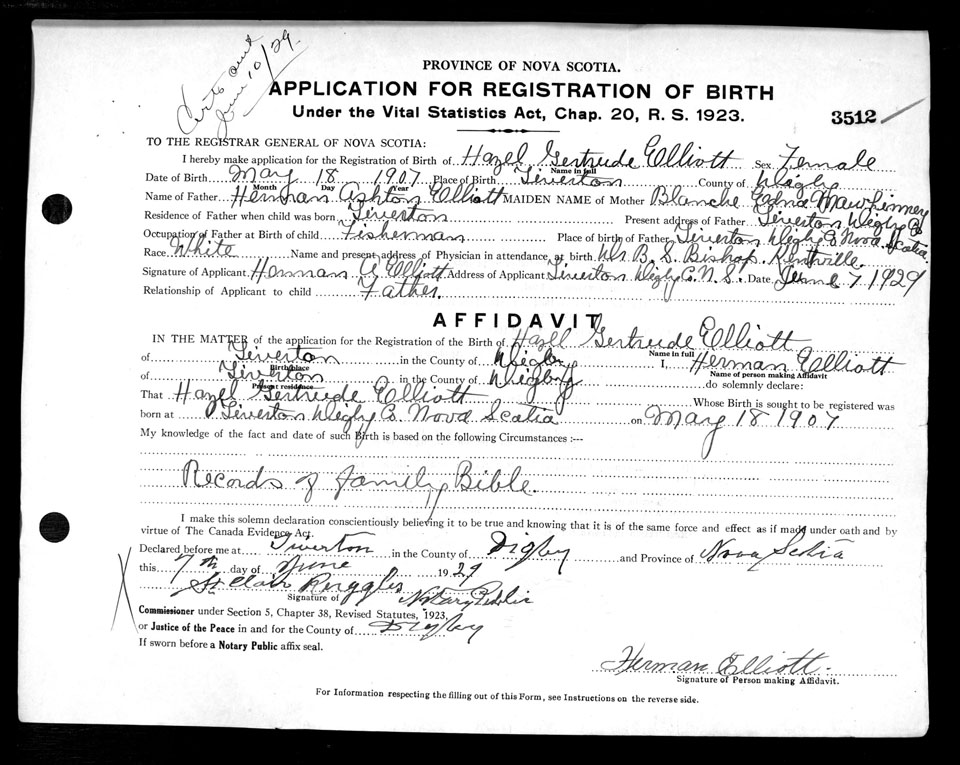 Certs sent
June 10/29.
PROVINCE OF NOVA SCOTIA.
APPLICATION FOR REGISTRATION OF BIRTH
Under the Vital Statistics Act, Chap. 20, R. S. 1923.
3512
TO THE REGISTRAR GENERAL OF NOVA SCOTIA:
I hereby make application for the Registration of Birth of Hazel Gertrude Elliott Sex Female
Name in full
Date of Birth May 18 1907 Place of Birth Tiverton County of Digby
Month Day Year
Name of Father Herman Ashton Elliott MAIDEN NAME of Mother Blanche Edna Mawhinney
Residence of Father when child was born Tiverton Present address of Father Tiverton Digby Co
Occupation of Father at Birth of child Fisherman Place of birth of Father Tiverton Digby Co Nova Scotia
Race White Name and present address of Physician in attendance at birth Dr. B. S. Bishop. Kentville.
Signature of Applicant Herman A Elliott Address of Applicant Tiverton Digby Co. N. S. Date June 7 1929
Relationship of Applicant to child Father.
AFFIDAVIT
IN THE MATTER of the application for the Registration of the Birth of Hazel Gertrude Elliott
Name in full
of Tiverton in the County of Digby I, Herman Elliott
Birthplace Name of person making Affidavit
of Tiverton in the County of Digby do solemnly declare:
Present residence
That Hazel Gertrude Elliott Whose Birth is sought to be registered was
born at Tiverton Digby Co. Nova Scotia on May 18 1907
My knowledge of the fact and date of such Birth is based on the following Circumstances :---
Records of family Bible.
I make this solemn declaration conscientiously believing it to be true and knowing that it is of the same force and effect as if made under oath and by
virtue of The Canada Evidence Act.
Declared before me at Tiverton in the County of Digby and Province of Nova Scotia
this 7th day of June 1929
St Clair Ruggles
Signature of Notary Public
Commissioner under Section 5, Chapter 38, Revised Statutes, 1923,
or Justice of the Peace in and for the County of Digby
If sworn before a Notary Public affix seal.
X
Herman Elliott.
Signature of Person making Affidavit.
For Information respecting the filling out of this Form, see Instructions on the reverse side.